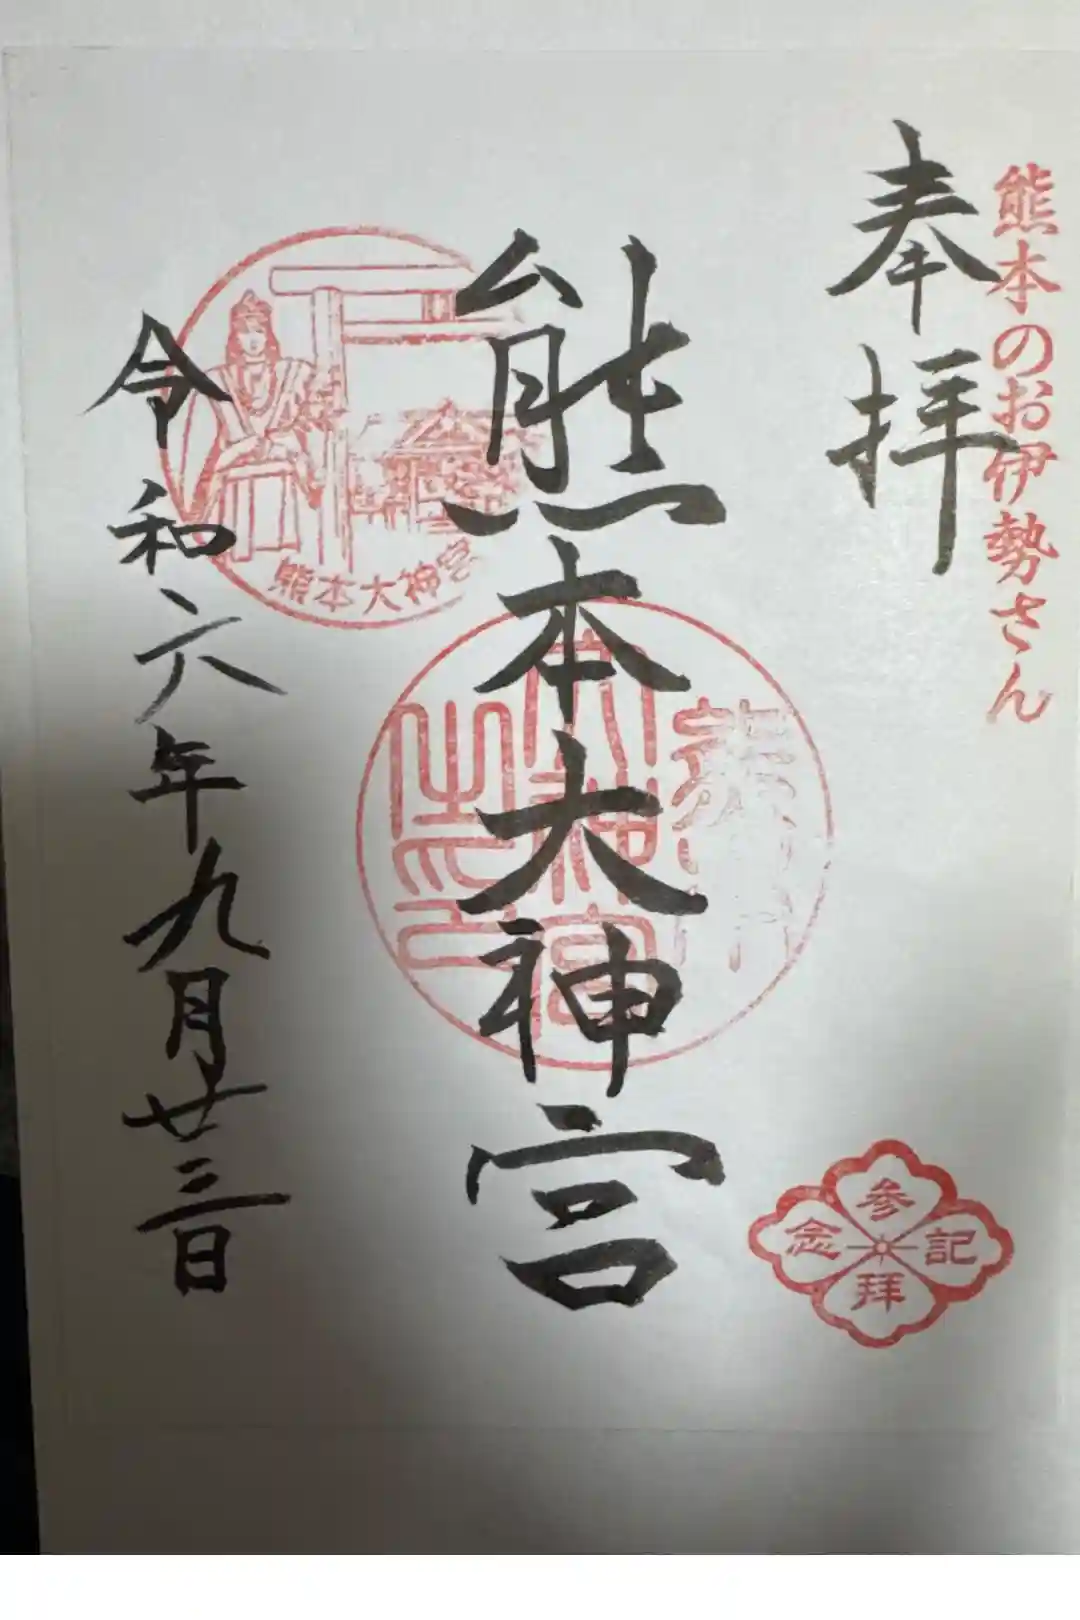 熊本のお伊勢さん
奉拝
熊本大神宮
熊本大神宮
令和六年九月廿三日
参拝記念